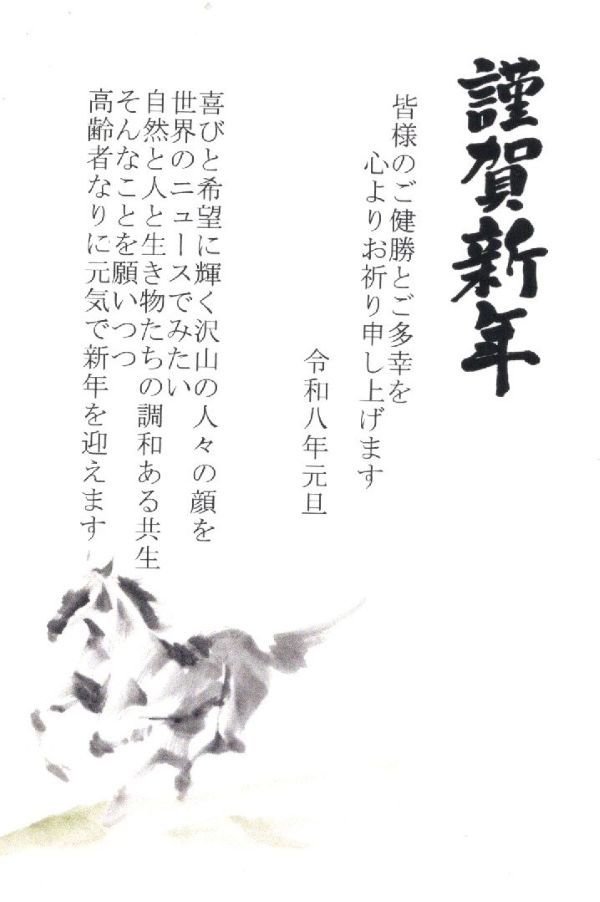 謹賀新年
皆様のご健勝とご多幸を
心よりお祈り申し上げます
令和八年元旦
喜びと希望に輝く沢山の人々の顔を
世界のニュースでみたい
自然と人と生き物たちの調和ある共生
そんなことを願いつつ
高齢者なりに元気で新年を迎えます